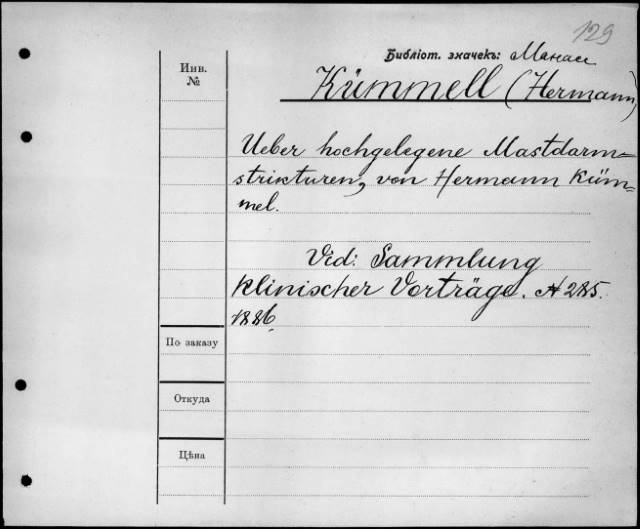 129
Библіот. значекъ: Манас
Инв.
№
Kümmell (Hermann)
Ueber hochgelegene Mastdarm-
strikturen, von Hermann Küm-
mel.
Vid: Sammlung
klinischer Vorträge. № 285.
1886
По заказу
Откуда
Цѣна